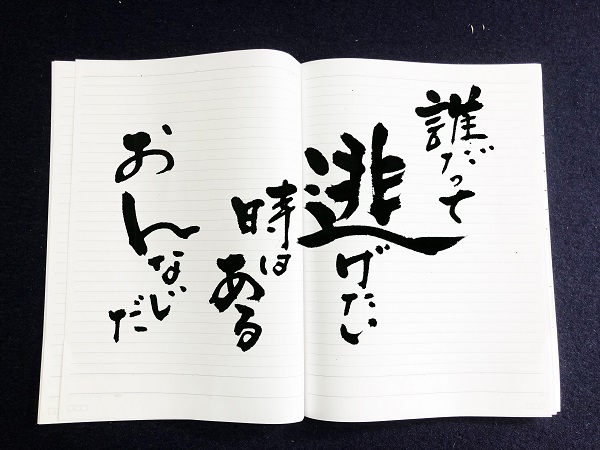 誰だって
逃げたい
時はある
おんなじだ